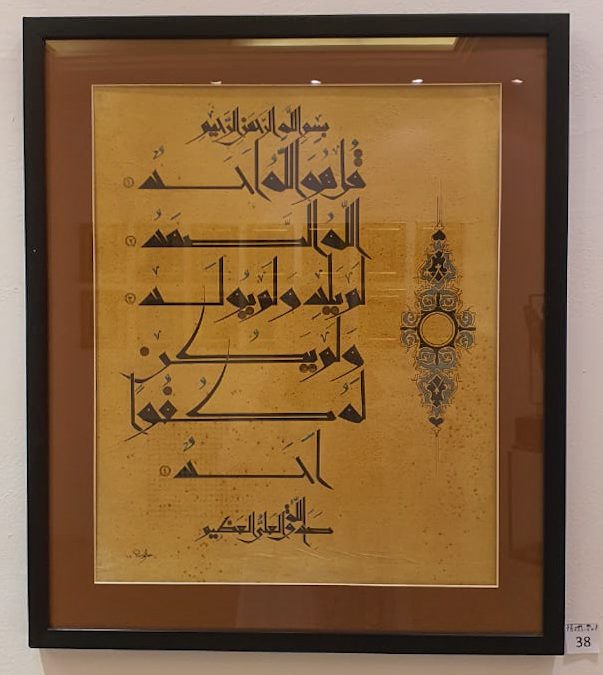 بِسْمِ اللَّهِ الرَّحْمَنِ الرَّحِيمِ
قُلْ هُوَ اللَّهُ أَحَدٌ ١
اللَّهُ الصَّمَدُ ٢
لَمْ يَلِدْ وَلَمْ يُولَدْ ٣
وَلَمْ يَكُن
لَّهُ كُفُوًا
أَحَدٌ ٤
صدق الله العلي العظيم
38